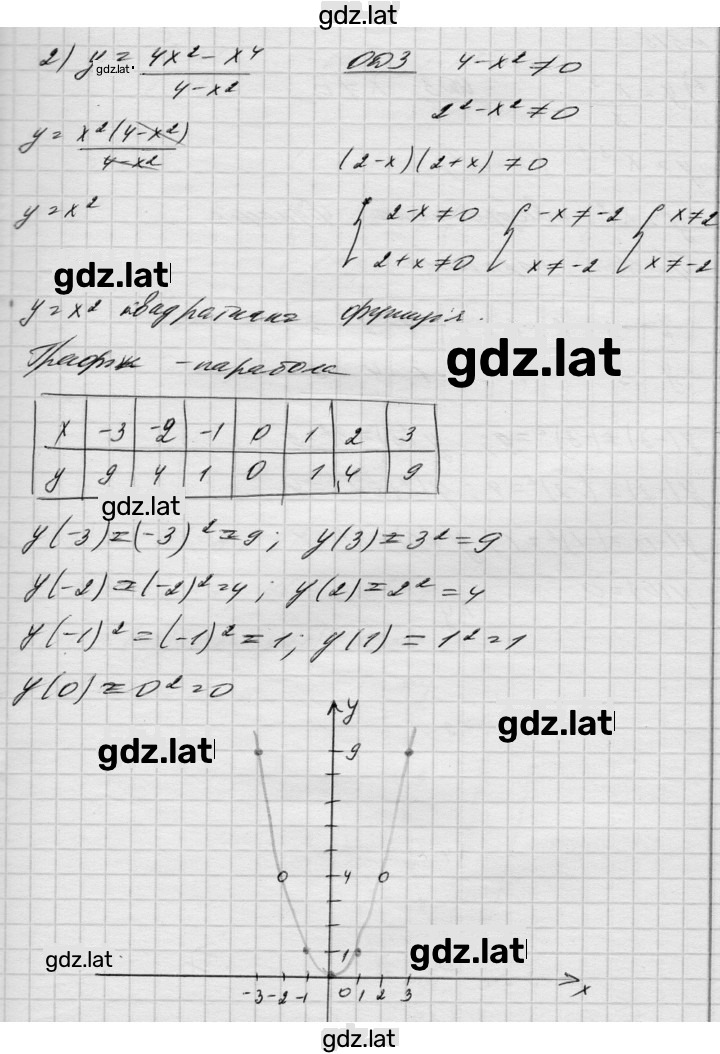 gdz.lat
2) y = (4x² - x⁴)/(4 - x²) ОДЗ 4 - x² ≠ 0
gdz.lat
2² - x² ≠ 0
y = x²(4 - x²)/(4 - x²) (2 - x)(2 + x) ≠ 0
y = x² { 2 - x ≠ 0 { -x ≠ -2 { x ≠ 2
2 + x ≠ 0 x ≠ -2 x ≠ -2
gdz.lat
y = x² квадратична функція.
gdz.lat
Графік - парабола
x -3 -2 -1 0 1 2 3
y 9 4 1 0 1 4 9
gdz.lat
y(-3) = (-3)² = 9; y(3) = 3² = 9
y(-2) = (-2)² = 4; y(2) = 2² = 4
y(-1)² = (-1)² = 1; y(1) = 1² = 1
y(0) = 0² = 0
y
gdz.lat
gdz.lat
9
4
1
gdz.lat
gdz.lat
-3 -2 -1 0 1 2 3 x
gdz.lat